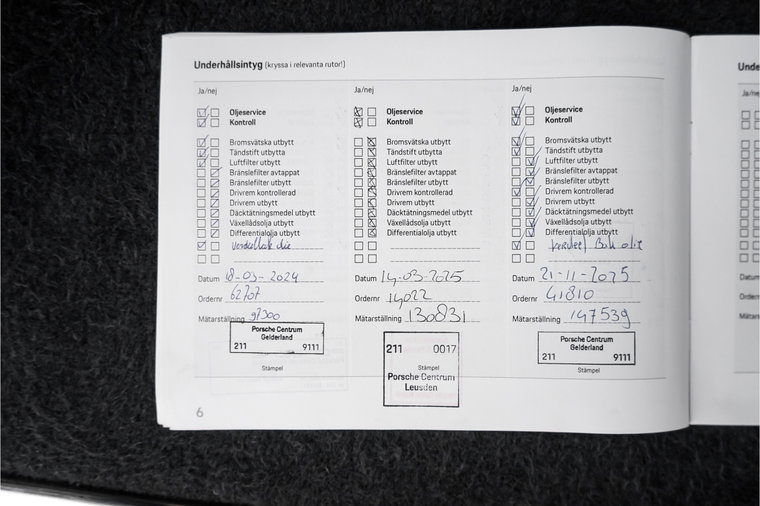 Underhållsintyg (kryssa i relevanta rutor!)
Ja/nej
Oljeservice
Kontroll
Bromsvätska utbytt
Tändstift utbytta
Luftfilter utbytt
Bränslefilter avtappat
Bränslefilter utbytt
Drivrem kontrollerad
Drivrem utbytt
Däcktätningsmedel utbytt
Växellådsolja utbytt
Differentialolja utbytt
Datum 18-03-2024
Ordernr 62707
Mätarställning
Porsche Centrum
Gelderland
211 9111
Stämpel
Ja/nej
Oljeservice
Kontroll
Bromsvätska utbytt
Tändstift utbytta
Luftfilter utbytt
Bränslefilter avtappat
Bränslefilter utbytt
Drivrem kontrollerad
Drivrem utbytt
Däcktätningsmedel utbytt
Växellådsolja utbytt
Differentialolja utbytt
Datum 14-03-2025
Ordernr 14022
Mätarställning 130831
211 0017
Stämpel
Porsche Centrum
Leusden
Ja/nej
Oljeservice
Kontroll
Bromsvätska utbytt
Tändstift utbytta
Luftfilter utbytt
Bränslefilter avtappat
Bränslefilter utbytt
Drivrem kontrollerad
Drivrem utbytt
Däcktätningsmedel utbytt
Växellådsolja utbytt
Differentialolja utbytt
Datum 21-11-2025
Ordernr 41810
Mätarställning 147539
Porsche Centrum
Gelderland
211 9111
Stämpel
6